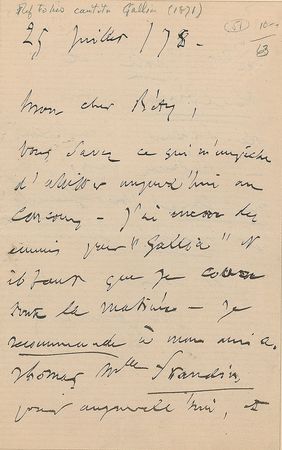 Ref to his cantata Gallia (1871)
25 juillet 178-
Mon cher Réty,
Vous savez ce qui m'empêche
d'assister aujourd'hui au
Concours - J'ai encore des
ennuis pour "Gallia" et
il faut que je coure
toute la matinée - Je
recommande à mon ami A.
Thomas Mlle
pour aujourd'hui, et